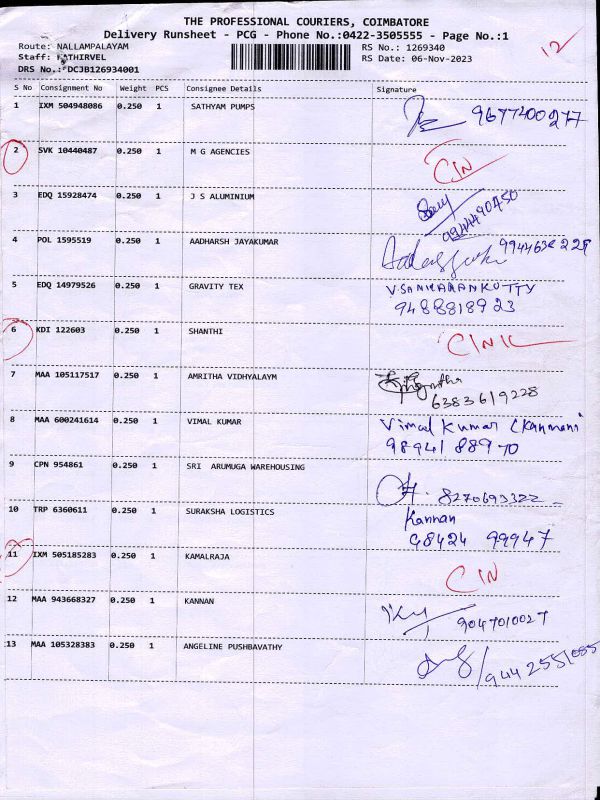 THE PROFESSIONAL COURIERS, COIMBATORE
Delivery Runsheet - PCG - Phone No.:0422-3505555 - Page No.:1
Route: NALLAMPALAYAM RS No.: 1269340
Staff: KATHIRVEL RS Date: 06-Nov-2023
DRS No.: DCJB126934001
12
S No Consignment No Weight PCS Consignee Details Signature
1 IXM 504948086 0.250 1 SATHYAM PUMPS 9677400277
2 SVK 10440487 0.250 1 M G AGENCIES
CIN
3 EDQ 15928474 0.250 1 J S ALUMINIUM
9944490450
4 POL 1595519 0.250 1 AADHARSH JAYAKUMAR
5 EDQ 14979526 0.250 1 GRAVITY TEX V SANKARANKUTTY
9488818923
6 KDI 122603 0.250 1 SHANTHI
7 MAA 105117517 0.250 1 AMRITHA VIDHYALAYM
6383619228
8 MAA 600241614 0.250 1 VIMAL KUMAR Vimal Kumar (Kanmani)
98941 88970
9 CPN 954861 0.250 1 SRI ARUMUGA WAREHOUSING
8270693322
10 TRP 6360611 0.250 1 SURAKSHA LOGISTICS Kannan
98424 99947
11 IXM 505185283 0.250 1 KAMALRAJA
CIN
12 MAA 943668327 0.250 1 KANNAN
9047010027
13 MAA 105328383 0.250 1 ANGELINE PUSHBAVATHY
9442551055